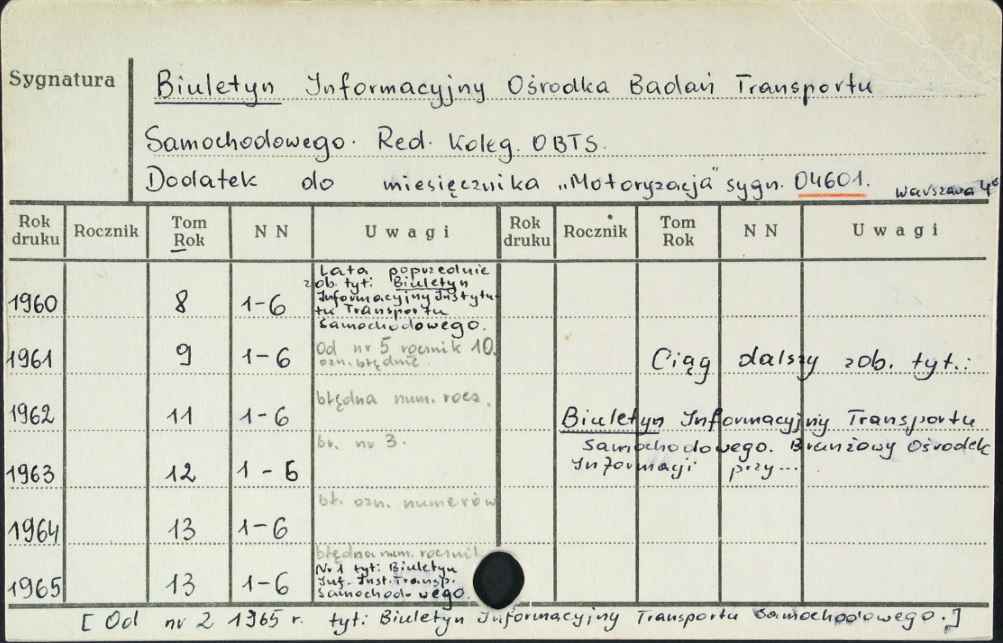 Sygnatura
Biuletyn Informacyjny Ośrodka Badań Transportu
Samochodowego. Red. Koleg. OBTS.
Dodatek do miesięcznika „Motoryzacja" sygn. 04601. Warszawa 4°
Rok druku Rocznik Tom Rok NN Uwagi Rok druku Rocznik Tom Rok NN Uwagi
1960 8 1-6 Lata poprzednie
zob. tyt: Biuletyn
Informacyjny Instytu-
tu Transportu
Samochodowego.
1961 9 1-6 Od nr 5 rocznik 10.
ozn. błędnie
Ciąg dalszy zob. tyt.:
1962 11 1-6 błędna num. rocz.
Biuletyn Informacyjny Transportu
Samochodowego. Branżowy Ośrodek
Informacji przy...
1963 12 1-5 br. nr 3.
1964 13 1-6 bł. ozn. numerów
1965 13 1-6 błędna num. roczni
Nr 1 tyt: Biuletyn
Inf. Inst. Transp.
Samochodowego.
[Od nr 2 1965 r. tyt: Biuletyn Informacyjny Transportu Samochodowego.]